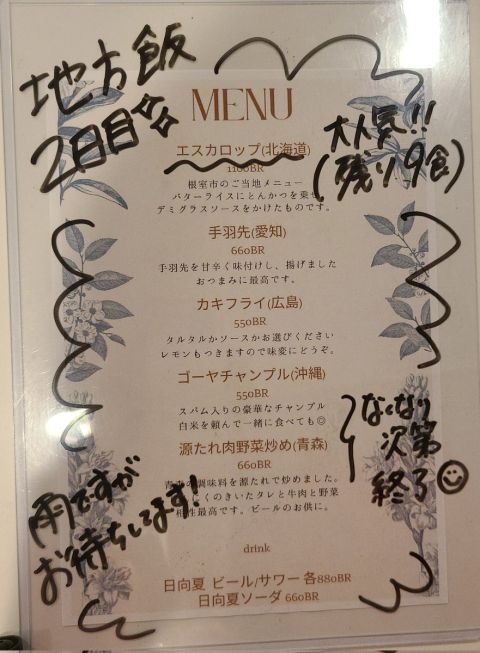 地方飯
2日目
MENU
大人気!!
(残り9食)
エスカロップ(北海道)
1100BR
根室市のご当地メニュー
バターライスにとんかつを乗せ
デミグラスソースをかけたものです。
手羽先(愛知)
660BR
手羽先を甘辛く味付けし、揚げました
おつまみに最高です。
カキフライ(広島)
550BR
タルタルかソースかお選びください
レモンもつきますので味変にどうぞ。
ゴーヤチャンプル(沖縄)
550BR
スパム入りの豪華なチャンプル
白米を頼んで一緒に食べても◎
なくなり
次第
終了
源たれ肉野菜炒め(青森)
660BR
青森の調味料を源たれで炒めました。
くのきいたタレと牛肉と野菜
相性最高です。ビールのお供に。
雨ですが
お待ちしてます!
drink
日向夏 ビール/サワー 各880BR
日向夏ソーダ 660BR